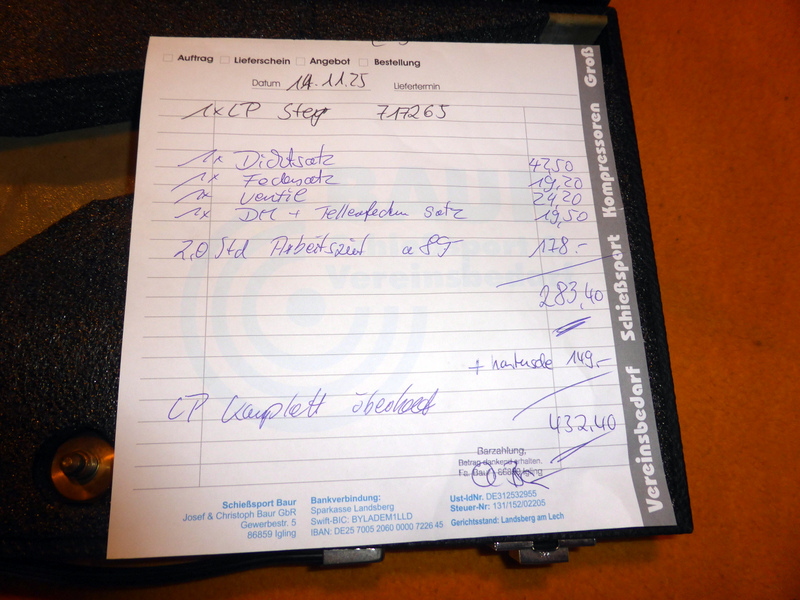 Auftrag Lieferschein Angebot Bestellung
Datum 14.11.25 Liefertermin
1x LP Steyr 717265
1x Dichtsatz 42,50
1x Federsatz 19,20
1x Ventil 24,20
1x DM + Tellerfedern satz 19,50
2,0 Std Arbeitszeit a 89 178.-
283,40
+ 149.-
LP Komplett überholt
432.40
Barzahlung,
Betrag dankend erhalten.
Fa. Baur 86859 Igling
Schießsport Baur
Josef & Christoph Baur GbR
Gewerbestr. 5
86859 Igling
Bankverbindung:
Sparkasse Landsberg
Swift-BIC: BYLADEM1LLD
IBAN: DE25 7005 2060 0000 7226 45
Ust-IdNr. DE312532955
Steuer-Nr: 131/152/02205
Gerichtsstand: Landsberg am Lech
Vereinsbedarf Schießsport Kompressoren Groß